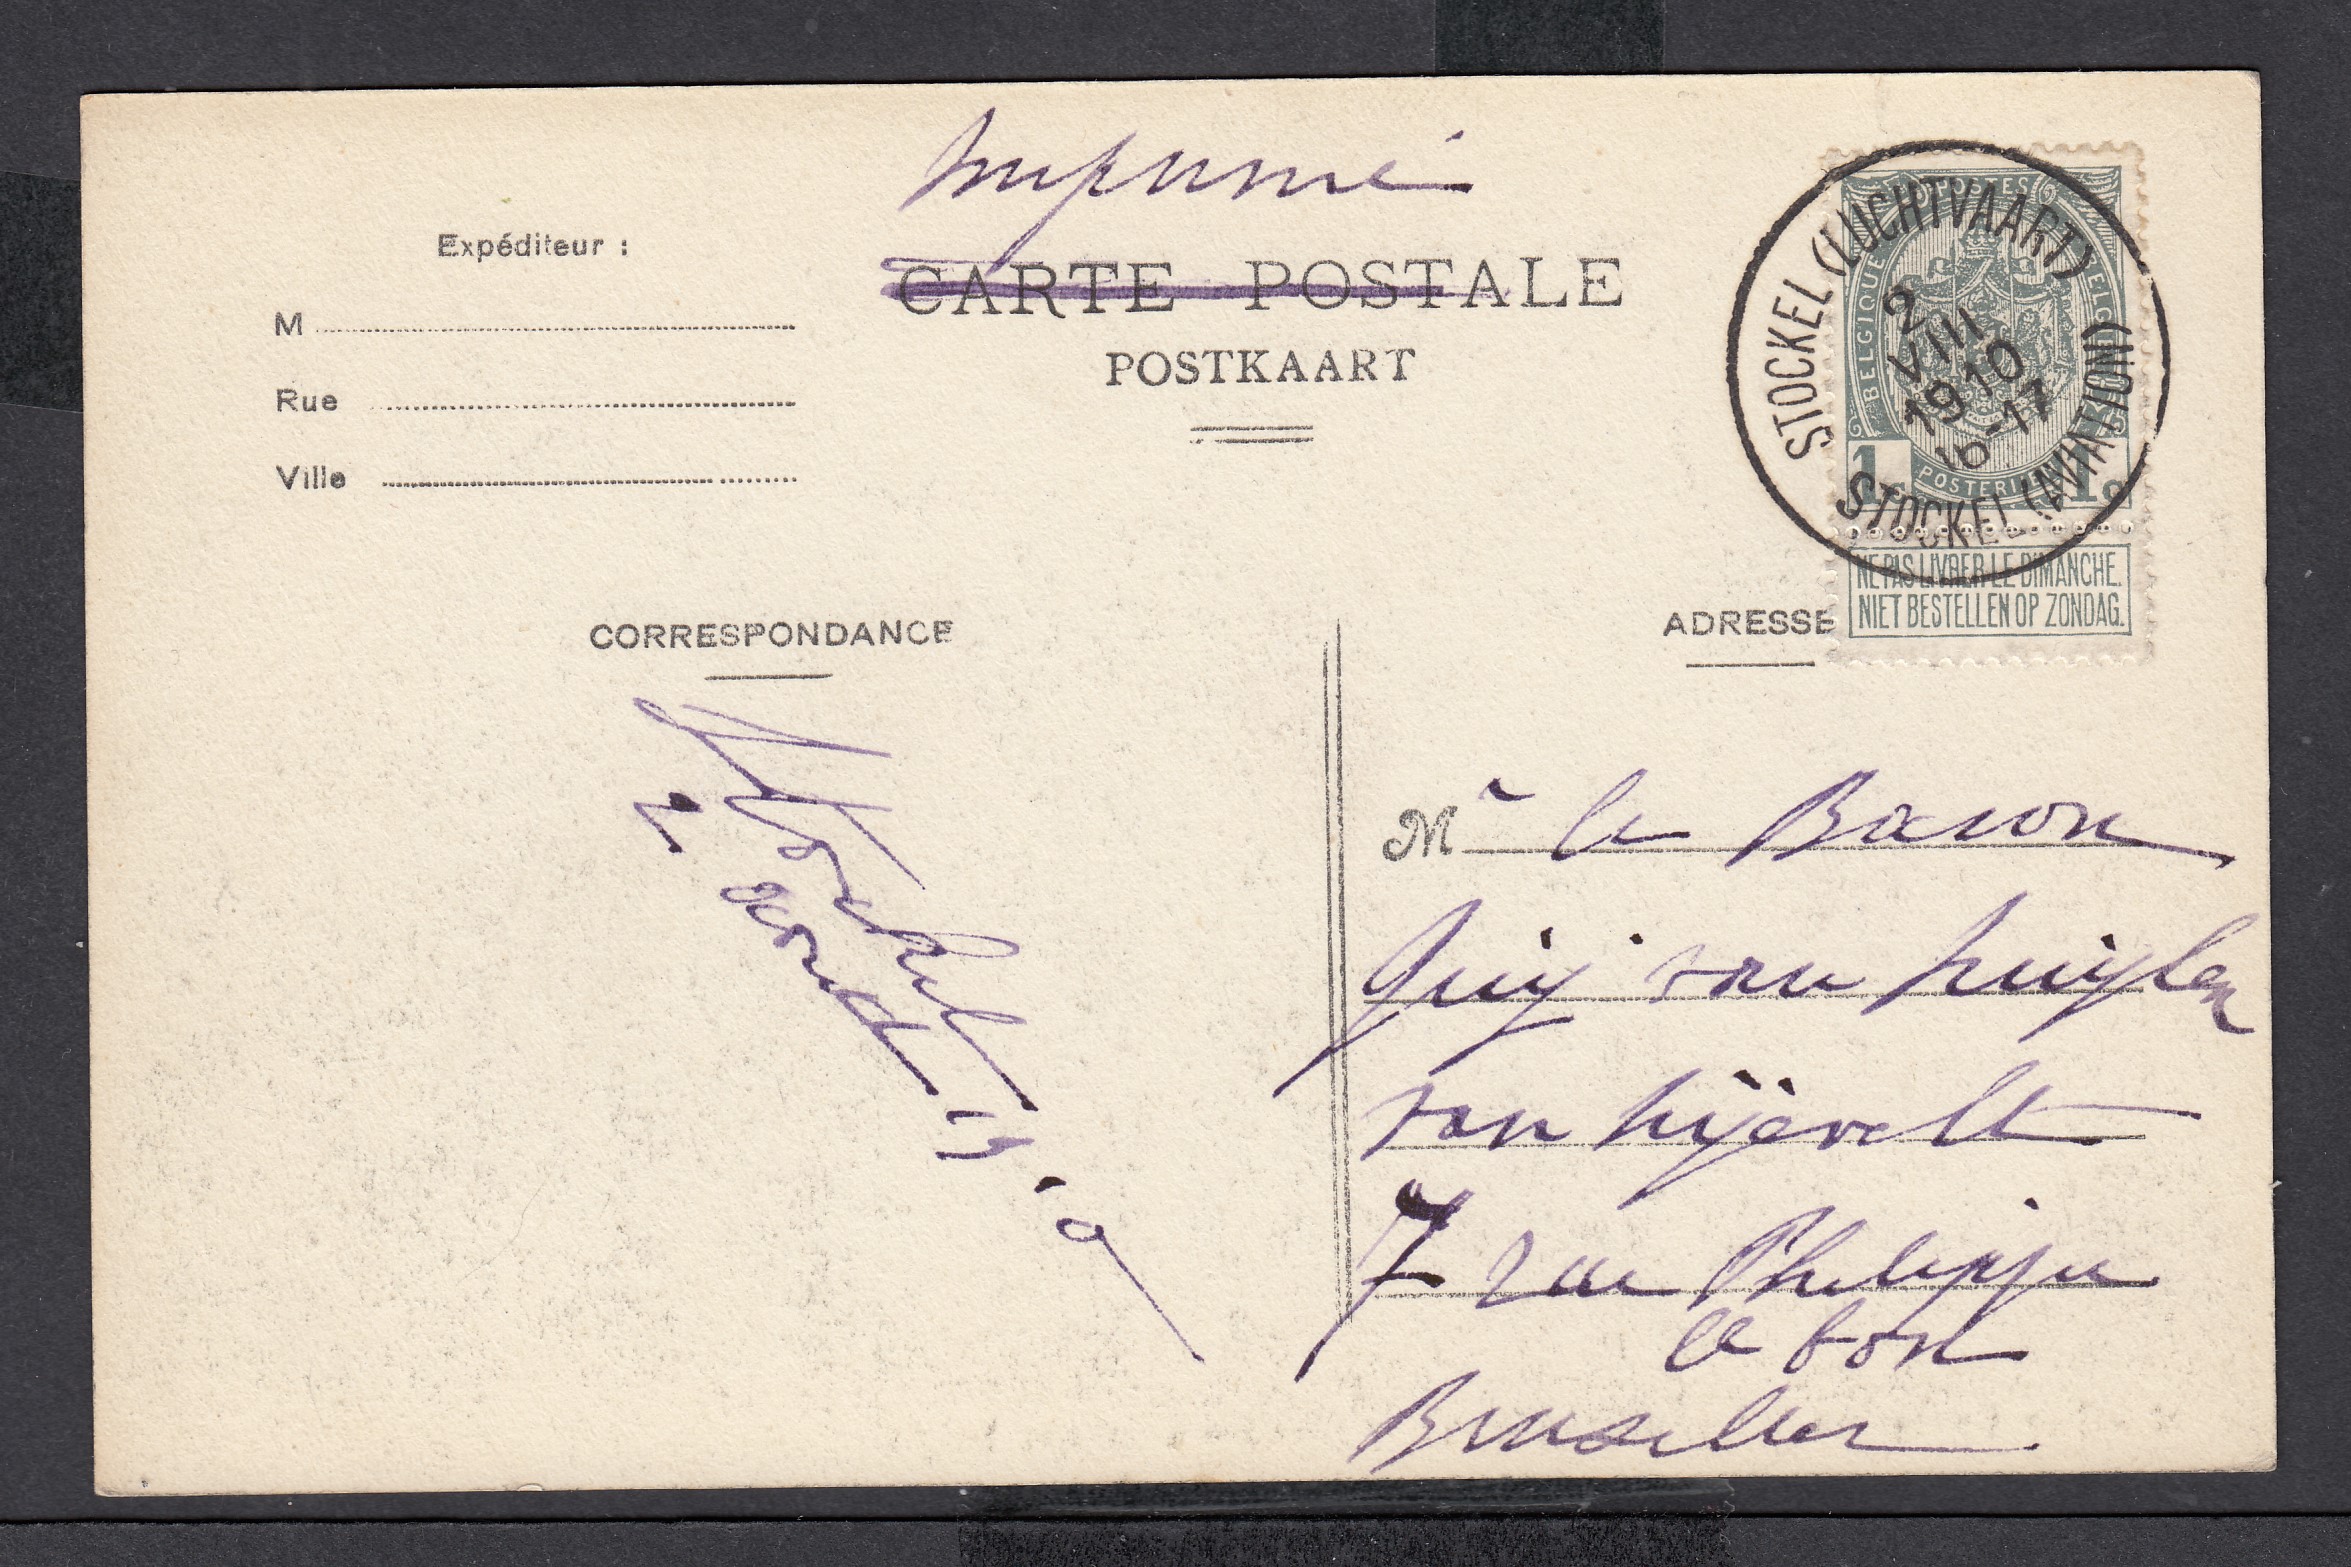 Imprimé
Expéditeur :
M
Rue
Ville
CARTE POSTALE
POSTKAART
STOCKEL (LUCHTVAART)
2
VIII
1910
16-17
STOCKEL (AVIATION)
POSTES
BELGIQUE BELGIË
1c 1c
POSTERIJEN
NE PAS LIVRER LE DIMANCHE.
NIET BESTELLEN OP ZONDAG.
CORRESPONDANCE
ADRESSE
Stockel
2 août 1910
Mr le Baron
van
van
7 rue Philippe
le bon
Bruxelles